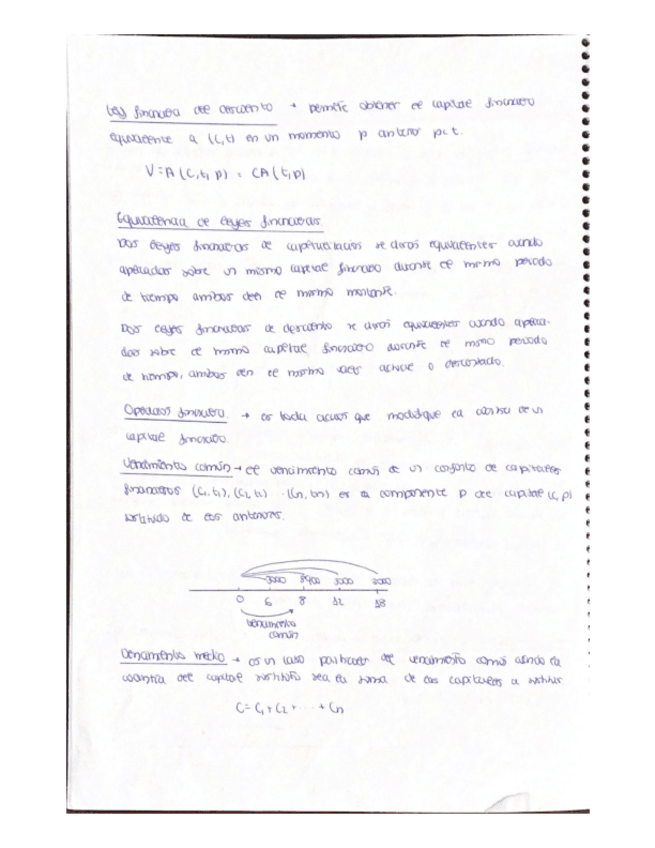 Ley financiera del descuento → permite obtener el capital financiero
equivalente a (C,t) en un momento p anterior p<t.
V=A(C,t,p) = CA(t,p)
Equivalencia de leyes financieras
Dos leyes financieras de capitalización se dicen equivalentes cuando
aplicadas sobre un mismo capital financiero durante el mismo periodo
de tiempo ambas den el mismo montante.
Dos leyes financieras de descuento se dicen equivalentes cuando aplica-
das sobre el mismo capital financiero durante el mismo periodo
de tiempo, ambas den el mismo valor actual o descontado.
Operación financiera. → es toda acción que modifique la cuantía de un
capital financiero.
Vencimiento común → el vencimiento común de un conjunto de capitales
financieros (C₁,t₁), (C₂,t₂) ... (Cn,tn) es la componente p del capital (C,p)
sustituido de los anteriores.
3000 3000 2000
0 6 8 12 18
vencimiento
común
Vencimiento medio → es un caso particular del vencimiento común cuando la
cuantía del capital sustituto sea la suma de los capitales a sustituir
C = C₁ + C₂ + ... + Cn